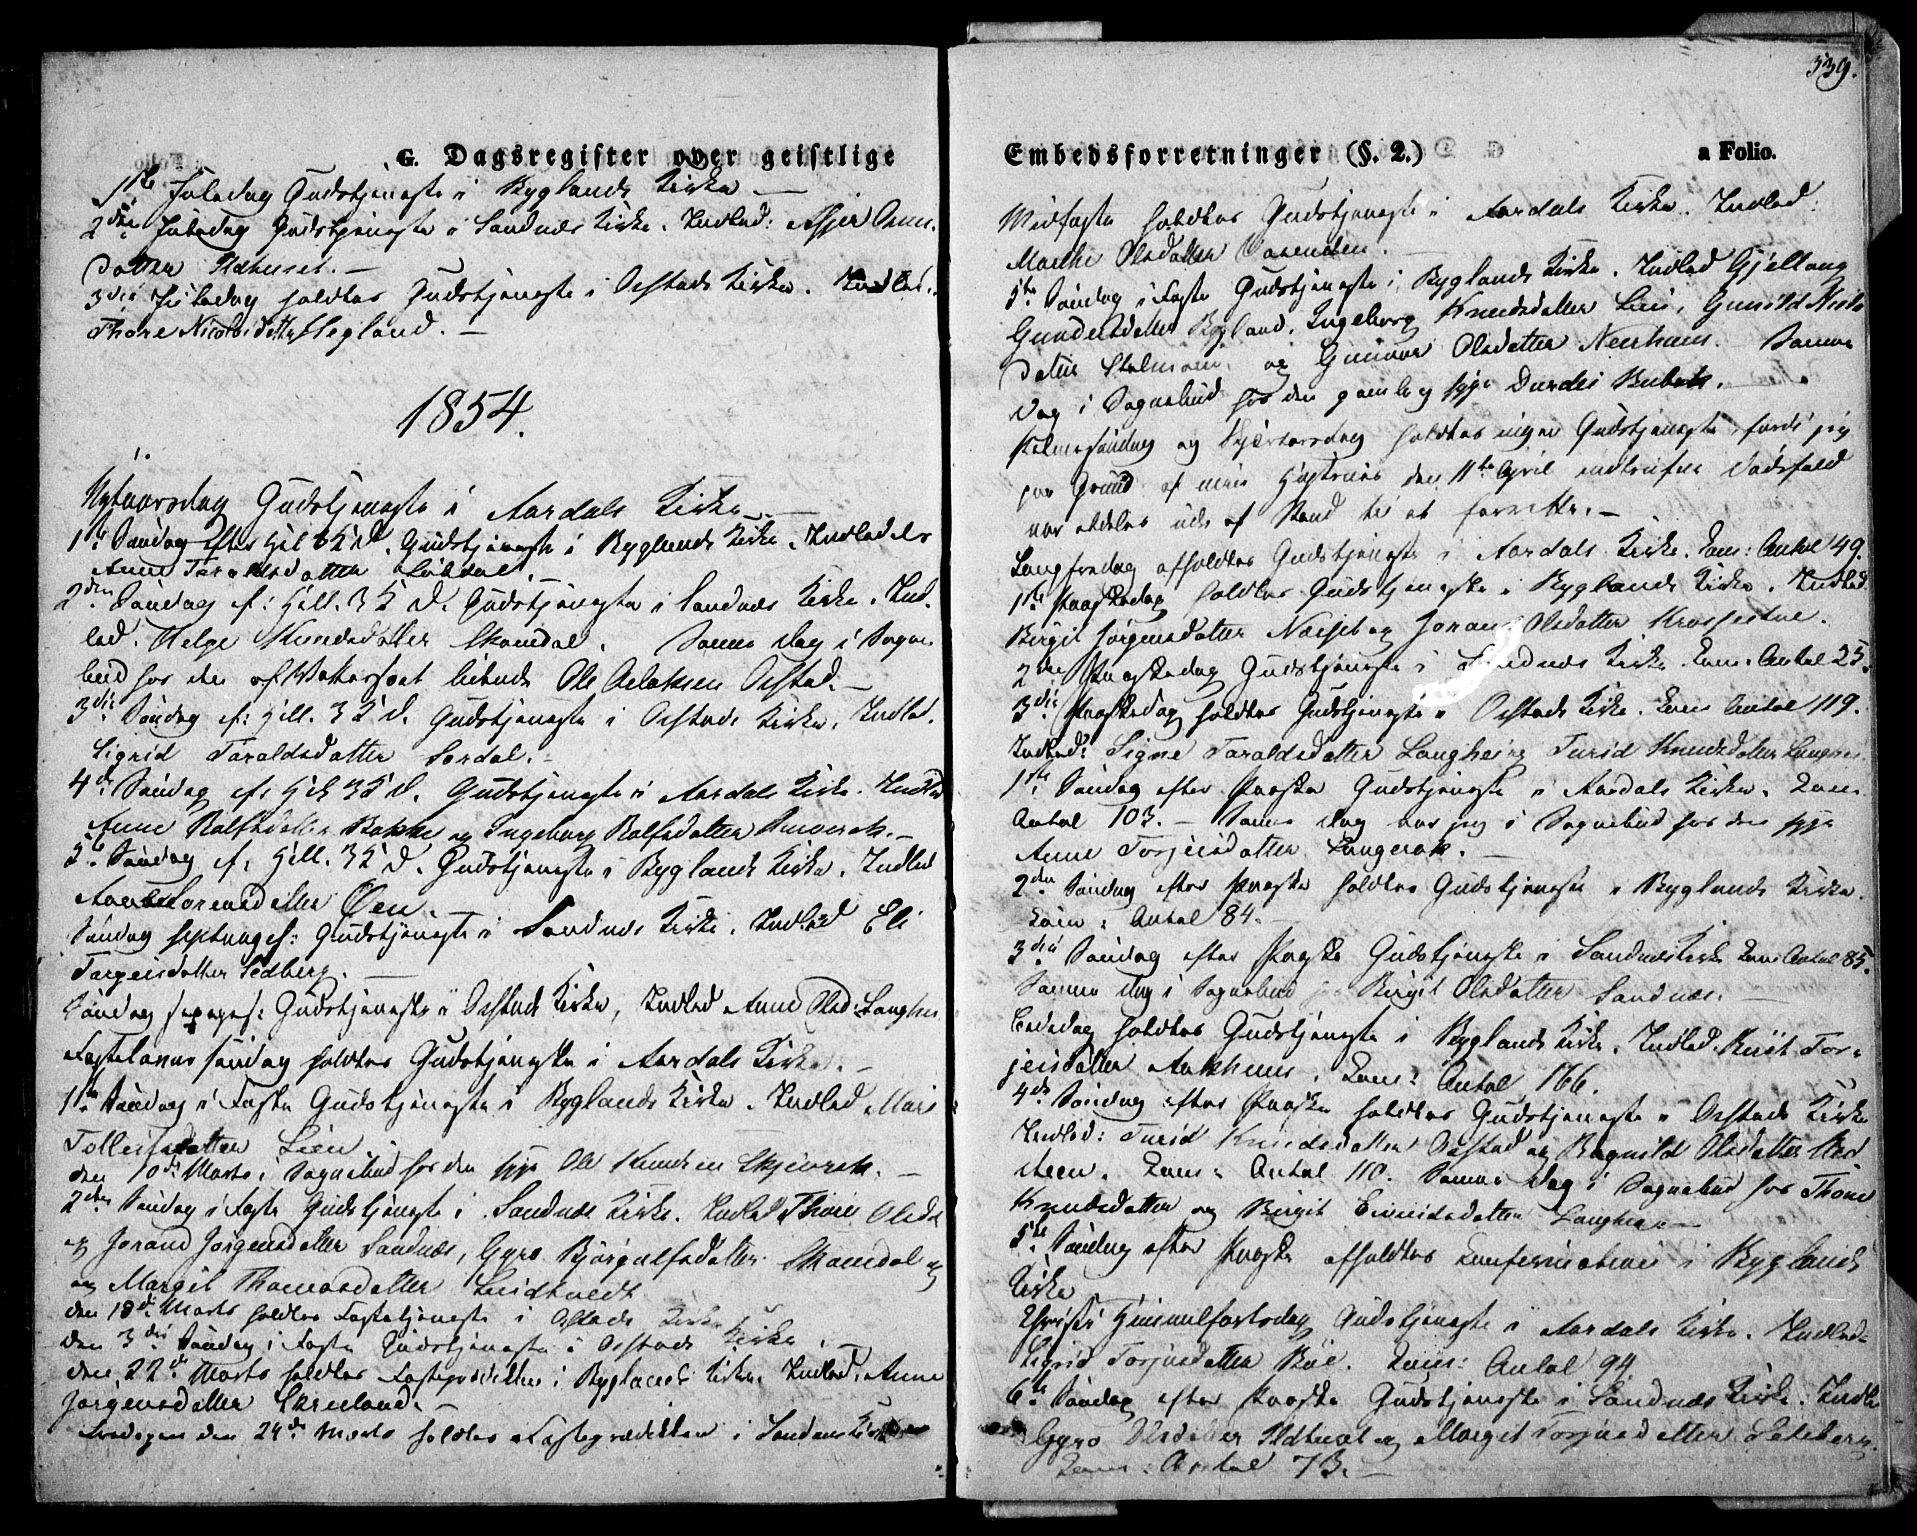 G. Dagsregister over geistlige
1ste Juledag Gudstjeneste i Byglands Kirke —
2den Juledag Gudstjeneste i Sandnes Kirke. Indled:
datter Ildhuset. —
3die Juledag holdtes Gudstjeneste i Østads Kirke. Indled:
Thore Nicolaidatter Hegland. —
1854.
Nytaarsdag Gudstjeneste i Aardals Kirke —
1ste Søndag efter Hel. 3 K. D. Gudstjeneste i Byglands Kirke. Indlededes
Anne Taraldsdatter
2den Søndag ef: Hell. 3 K. D. Gudstjeneste i Sandnes Kirke. Ind-
led. Helge Knudsdatter Skomdal. Samme Dag i Sogne-
bud hos den af Vattersot lidende Ole Aslaksen Østad. —
3die Søndag ef: Hell. 3 K. D. Gudstjeneste i Østads Kirke. Indled.
Sigrid Taraldsdatter Sordal. —
4de Søndag ef: Hel. 3 K. D. Gudstjeneste i Aardals Kirke. Indled
Anne Rolfsdatter Bakke og Ingeborg Rolfsdatter
5te Søndag ef. Hell. 3 K. D. Gudstjeneste i Byglands Kirke. Indled
Øen.
Søndag septuages: Gudstjeneste i Sandnes Kirke. Indled Eli
Torgeisdatter
Søndag sexages: Gudstjeneste i Østads Kirke, Indled Anne Olsd: Langhei
Fastelavns søndag holdtes Gudstjeneste i Aardals Kirke. —
1ste Søndag i Faste Gudstjeneste i Byglands Kirke. Indled Mari
Tollefsdatter Lien
den 10de Marts i Sognebud hos den syge Ole Knudsen Skjevrak. —
2den Søndag i Faste Gudstjeneste i Sandnes Kirke. Indled Thore Olsd.
og Jorand Jørgensdatter Sandnes, Gyro Bjørgulfsdatter Skomdal og
og Margit Thomasdatter
den 18de Marts holdtes Fastetjeneste i Østads Kirke
den 3die Søndag i Faste Gudstjeneste i Østads Kirke
den 22de Marts holdtes Fasteprædiken i Byglands Kirke. Indled. Anne
Jørgensdatter
Fredagen den 24de Marts holdtes Fasteprædiken i Sandnes Kirke
539.
Embedsforretninger (§. 2.) a Folio.
Midfaste holdtes Gudstjeneste i Aardals Kirke. Indled:
Marthe Olsdatter
5te Søndag i Faste Gudstjeneste i Byglands Kirke. Indled Gjellaug
Gundersdatter Bygland, Ingeborg Knudsdatter Lien, Gunild
datter og Gunvor Olsdatter Neerhuus. Samme
Dag i Sognebud hos den gamle og syge
Palmesøndag og Skjærtorsdag holdtes ingen Gudstjeneste, fordi jeg
paa Grund af min Hustrues den 11te April indtrufne Dødsfald
var aldeles ude af Stand til at forrette. —
Langfredag afholdtes Gudstjeneste i Aardals Kirke. Com: Antal 49.
1ste Paaskedag holdtes Gudstjeneste i Byglands Kirke. Indled.
Birgit Jørgensdatter og Joran Olsdatter
2den Paaskedag Gudstjeneste i Sandnes Kirke. Com: Antal 25.
3die Paaskedag holdtes Gudstjeneste i Østads Kirke. Com Antal 119.
Indled: Signe Taraldsdatter Langhei og Turid Knudsdatter
1ste Søndag efter Paaske Gudstjeneste i Aardals Kirke. Com:
Antal 103. — Samme Dag var jeg i Sognebud hos den syge
Anne Torjeisdatter Langerak. —
2den Søndag efter Paaske holdtes Gudstjeneste i Byglands Kirke.
Com: Antal 84. —
3die Søndag efter Paaske Gudstjeneste i Sandnes Kirke Com Antal 85.
Samme Dag i Sognebud Birgit Olsdatter Sandnes. —
Bededag holdtes Gudstjeneste i Byglands Kirke. Indled. Tor-
jeisdatter Aakhuus. Com: Antal 166.
4de Søndag efter Paaske holdtes Gudstjeneste i Østads Kirke
Indled: Turid Knudsdatter Østad og Ragnild Olsdatter
Com: Antal 110. Samme Dag i Sognebud hos Thone
Knudsdatter og Birgit Eivindsdatter Langhei —
5te Søndag efter Paaske afholdtes Confirmation i Byglands
Kirke
Christi Himmelfartsdag Gudstjeneste i Aardals Kirke. Indled:
Sigrid Torjusdatter Bøe. Com: Antal 94.
6te Søndag efter Paaske Gudstjeneste i Sandnes Kirke. Indled
Gyro Olsdatter og Margit Torjusdatter
Com: Antal 73. —